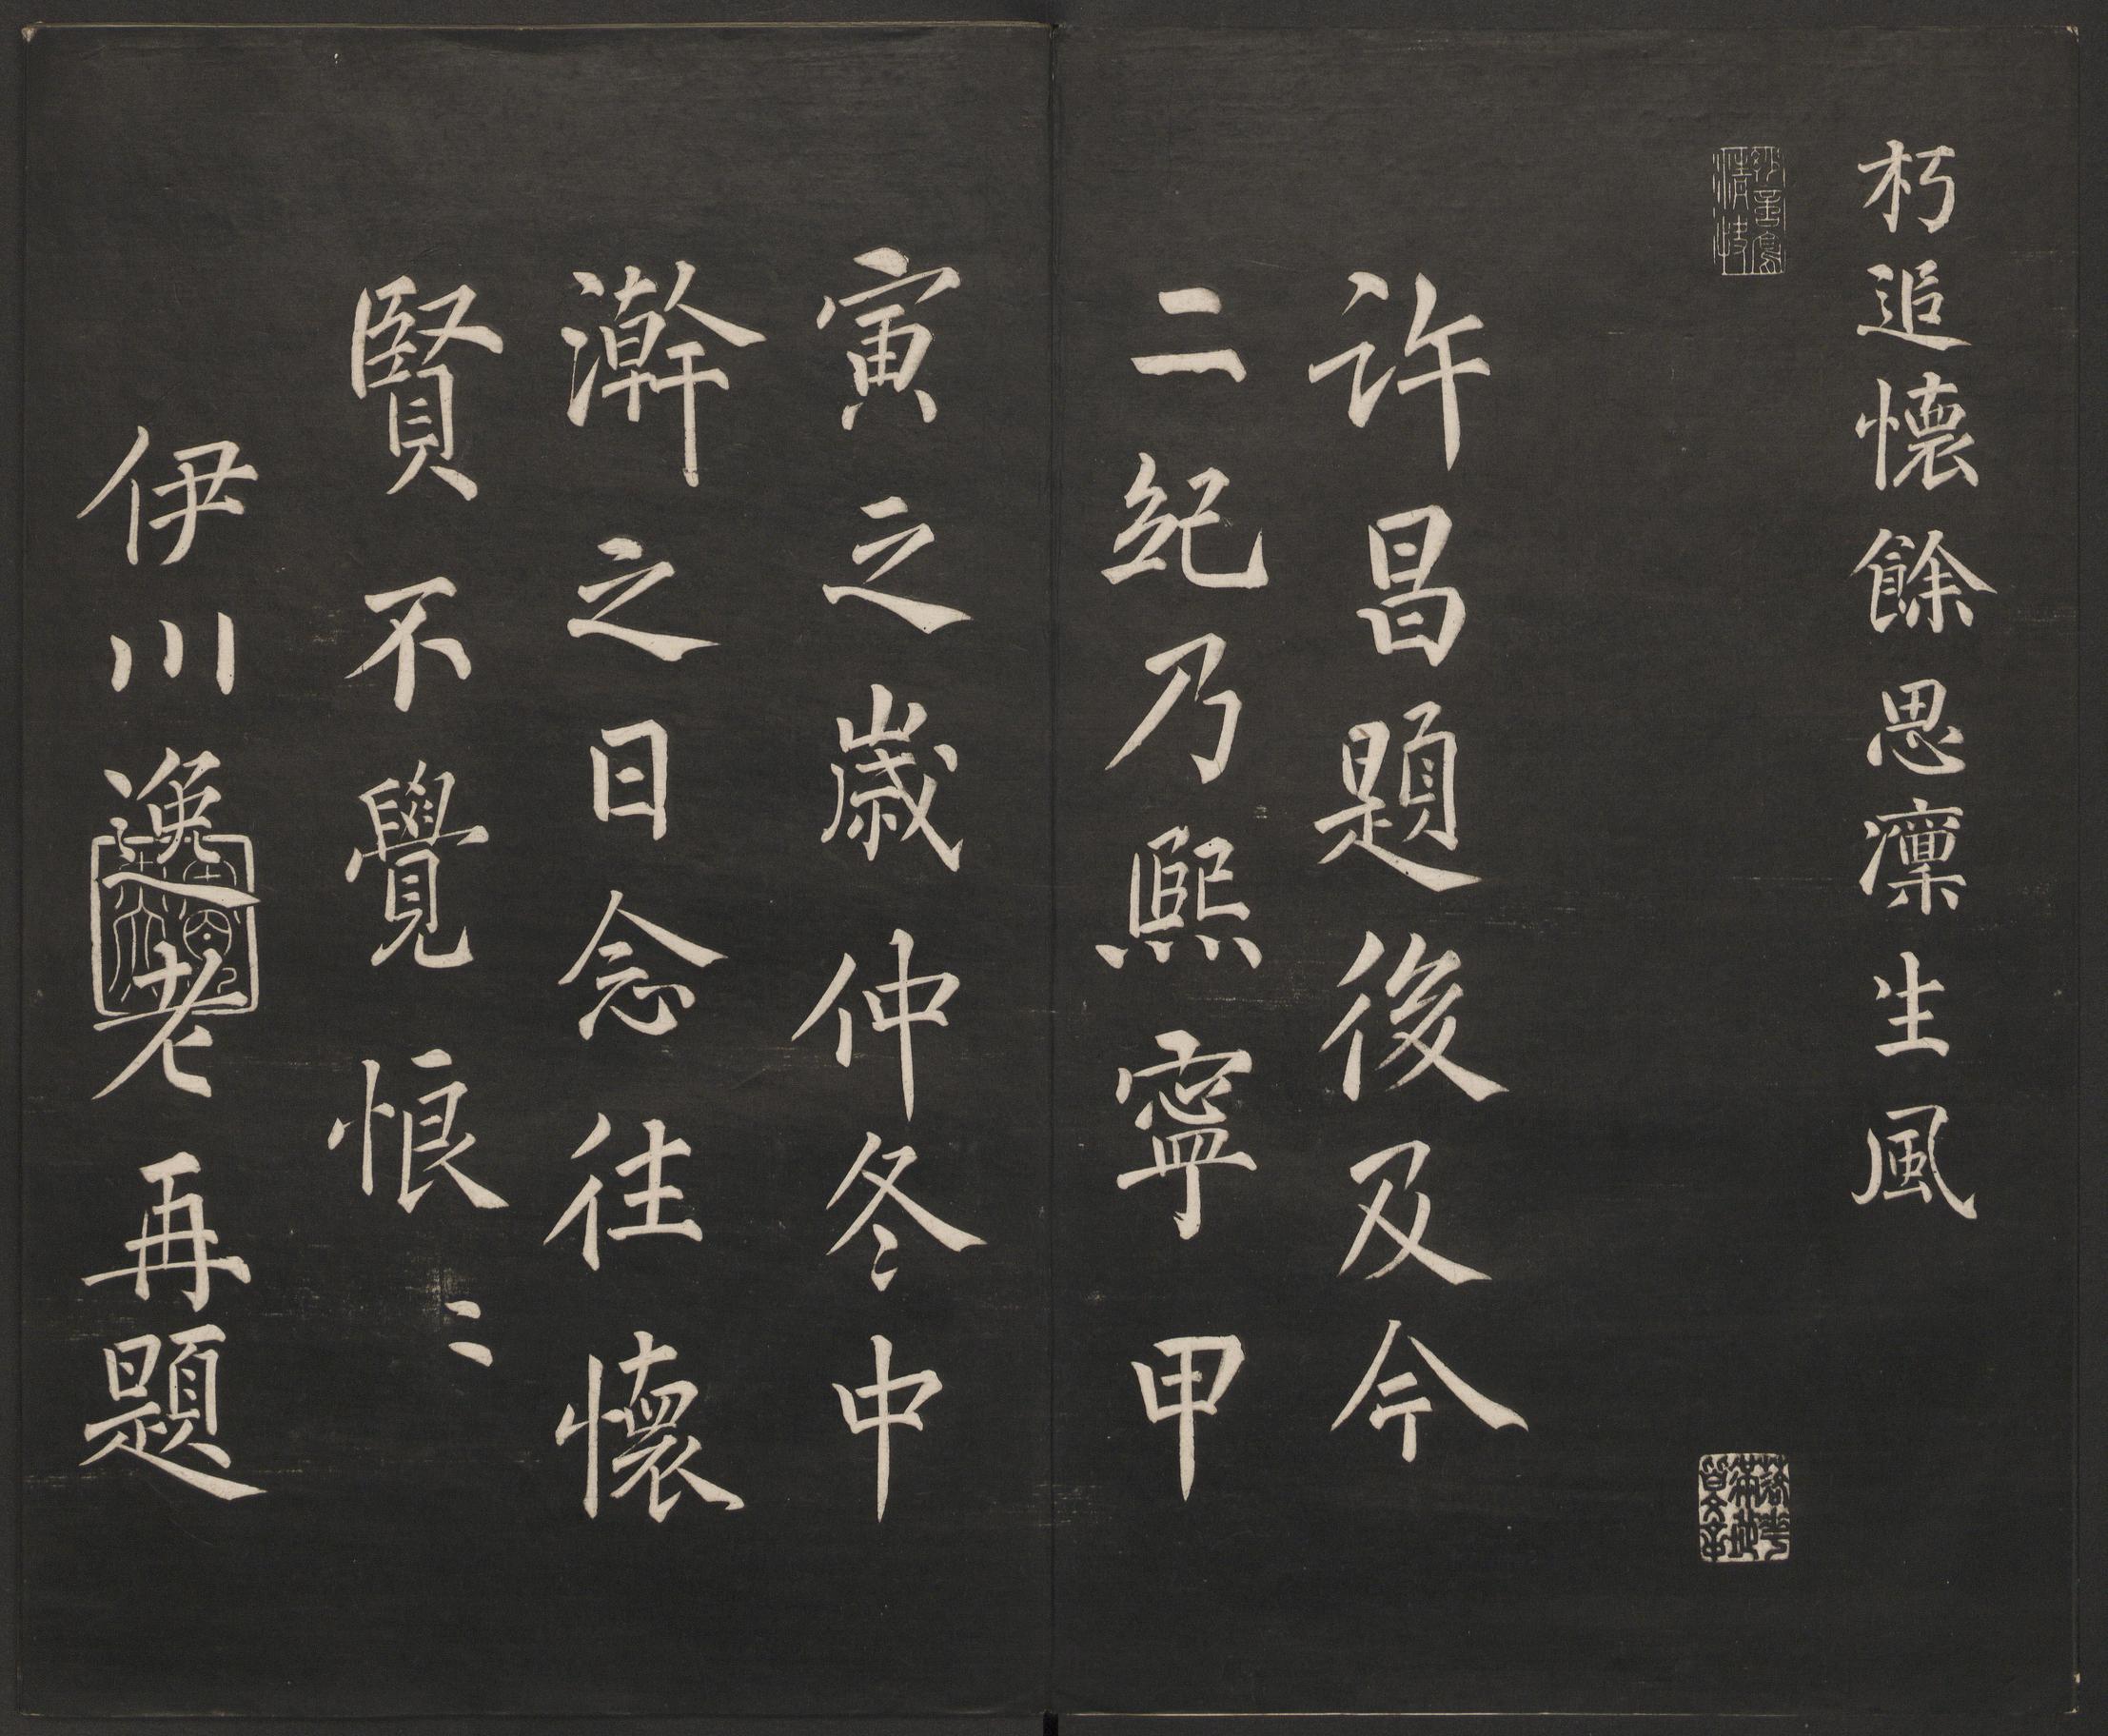 朽追懷餘思凜生風
许昌題後及今
二紀乃熙寧甲
寅之歲仲冬中
澣之日念往懷
賢不覺悢〻
伊川逸老再題